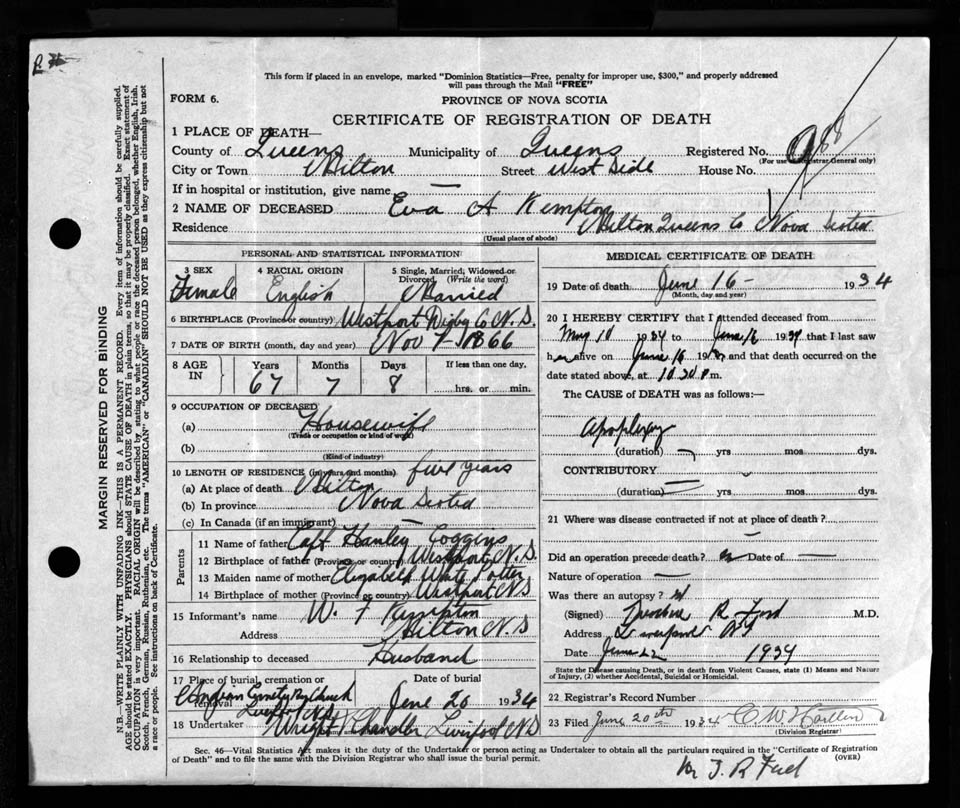 This form if placed in an envelope, marked "Dominion Statistics—Free, penalty for improper use, $300," and properly addressed
will pass through the Mail "FREE"
FORM 6.
PROVINCE OF NOVA SCOTIA
CERTIFICATE OF REGISTRATION OF DEATH
1 PLACE OF DEATH—
County of Queens Municipality of Queens Registered No.
(For use of Registrar General only)
City or Town Milton Street West Side House No.
If in hospital or institution, give name —
2 NAME OF DECEASED Eva A Kempton
Residence Milton Queens Co Nova Scotia
(Usual place of abode)
MARGIN RESERVED FOR BINDING
N.B.—WRITE PLAINLY WITH UNFADING INK—THIS IS A PERMANENT RECORD. Every item of information should be carefully supplied.
AGE should be stated EXACTLY. PHYSICIANS should STATE CAUSE OF DEATH in plain terms, so that it may be properly classified. Exact statement of
OCCUPATION is very important. RACIAL ORIGIN will be described by stating to what people or race the deceased person belonged, whether English, Irish,
Scotch, French, German, Russian, Ruthenian, etc. The terms "AMERICAN" or "CANADIAN" SHOULD NOT BE USED as they express citizenship but not
a race or people. See instructions on back of Certificate.
PERSONAL AND STATISTICAL INFORMATION
3 SEX 4 RACIAL ORIGIN 5 Single, Married, Widowed or
Divorced (Write the word)
Female English Married
6 BIRTHPLACE (Province or country) Westport Digby Co N.S.
7 DATE OF BIRTH (month, day and year) Nov 7 1866
8 AGE IN Years Months Days If less than one day,
67 7 8 hrs. or min.
9 OCCUPATION OF DECEASED
(a) Housewife
(Trade or occupation or kind of work)
(b)
(Kind of industry)
10 LENGTH OF RESIDENCE (in years and months) five years
(a) At place of death Milton
(b) In province Nova Scotia
(c) In Canada (if an immigrant) —
Parents
11 Name of father Capt Hanley Coggins
12 Birthplace of father (Province or country) Westport N.S.
13 Maiden name of mother Elizabeth White
14 Birthplace of mother (Province or country) Westport N S
15 Informant's name W. F Kempton
Address Milton N.S
16 Relationship to deceased Husband
17 Place of burial, cremation or
removal Date of burial
Cemetery June 20 1934
18 Undertaker Wright Chandler Liverpool N S
MEDICAL CERTIFICATE OF DEATH
19 Date of death June 16 - 1934
(Month, day and year)
20 I HEREBY CERTIFY that I attended deceased from
May 10 1934 to June 16 1934 that I last saw
her alive on June 16 and that death occurred on the
date stated above, at 10.30 P m.
The CAUSE of DEATH was as follows:—
Apoplexy
(duration) yrs mos dys.
CONTRIBUTORY
(duration) yrs mos dys.
21 Where was disease contracted if not at place of death?
—
Did an operation precede death? no Date of —
Nature of operation —
Was there an autopsy?
(Signed) Theodore R Ford M.D.
Address Liverpool NS
Date June 22 1934
State the Disease causing Death, or in death from Violent Causes, state (1) Means and Nature
of Injury, (2) whether Accidental, Suicidal or Homicidal.
22 Registrar's Record Number
23 Filed June 20th 1934
(Division Registrar)
Sec. 46—Vital Statistics Act makes it the duty of the Undertaker or person acting as Undertaker to obtain all the particulars required in the "Certificate of Registration
of Death" and to file the same with the Division Registrar who shall issue the burial permit. (OVER)